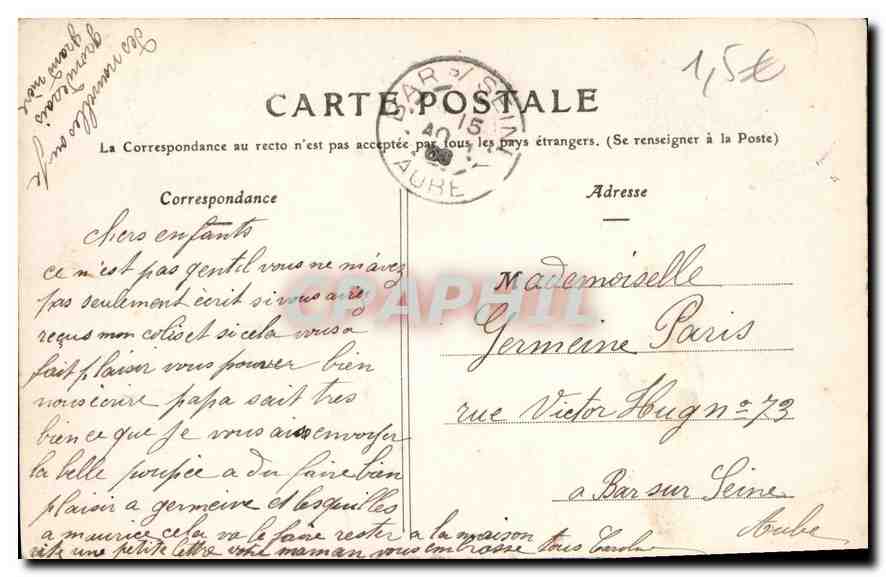 des nouvelles
grand mère
1,5€
BAR S/ SEINE
15
AO
08
AUBE
CARTE POSTALE
La Correspondance au recto n'est pas acceptée par tous les pays étrangers. (Se renseigner à la Poste)
Correspondance
Adresse
chers enfants
ce n'est pas gentil vous ne mavez
pas seulement écrit si vous avez
reçus mon colis et si cela vous a
fait plaisir vous pouvez bien
nous écrire papa sait tres
bien ce que je vous ais envoyer
la belle poupée a du faire bien
plaisir a germeine et les quilles
a maurice cela va le faire rester a la maison
vite une petite lettre votre maman vous embrasse tous
Mademoiselle
Germeine Paris
rue Victor Hugo no 73
a Bar sur Seine
Aube
CPAPHIL